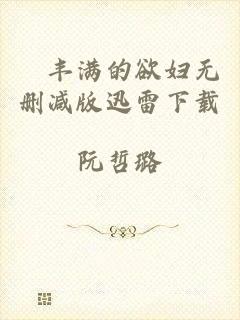 丰满的欲妇无
删减版迅雷下载
阮哲璐